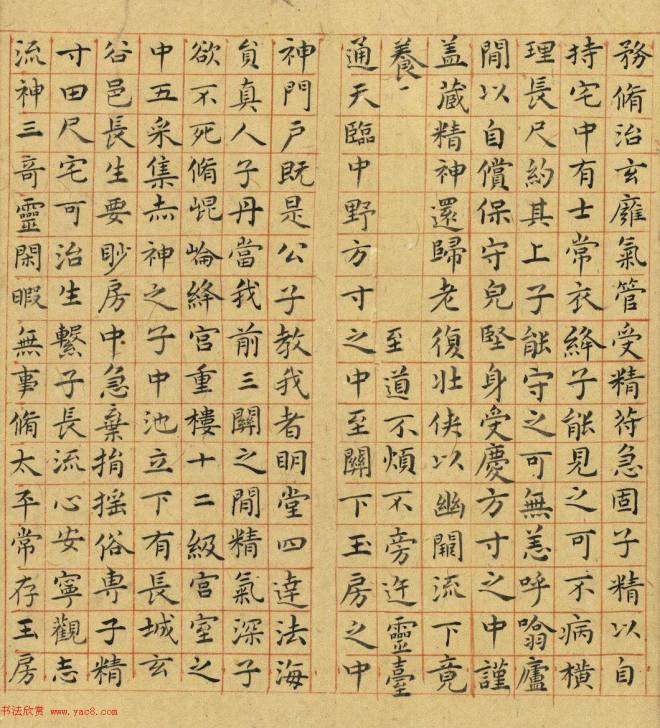 務脩治玄廱氣管受精苻急固子精以自
持宅中有士常衣絳子能見之可不病橫
理長尺約其上子能守之可無恙呼噏廬
閒以自償保守皃堅身受慶方寸之中謹
盖蔵精神還歸老復壯俠以幽闕流下竟
養一 至道不煩不旁迕靈臺
通天臨中野方寸之中至關下玉房之中
神門戶既是公子教我者明堂四達法海
貟真人子丹當我前三關之閒精氣深子
欲不死脩崐崘絳宮重樓十二級宮室之
中五采集赤神之子中池立下有長城玄
谷邑長生要眇房中急棄捐摇俗専子精
寸田尺宅可治生繫子長流心安寧觀志
流神三奇靈閑暇無事脩太平常存王房
书法欣赏 www.yac8.com